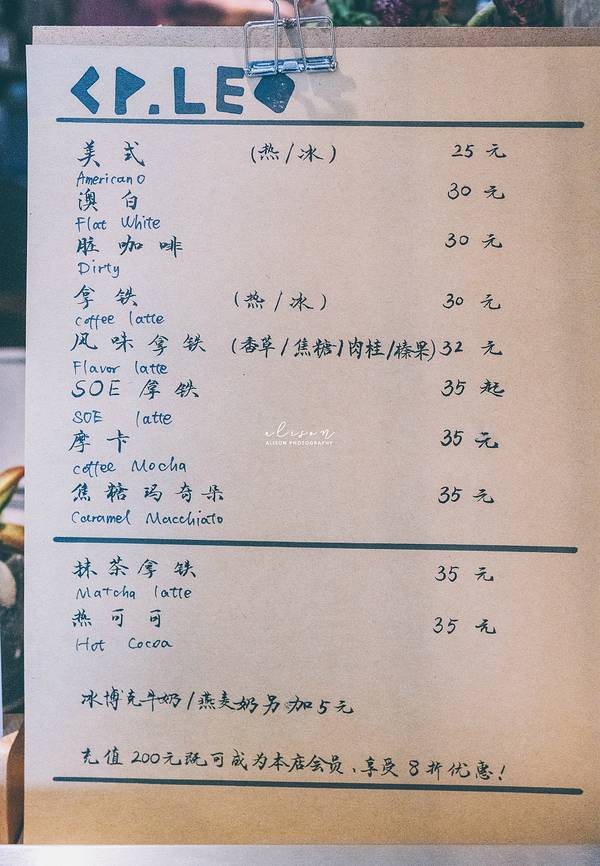 CP.LEO
美式 (热/冰) 25元
Americano
澳白 30元
Flat White
脏咖啡 30元
Dirty
拿铁 (热/冰) 30元
coffee latte
风味拿铁 (香草/焦糖/肉桂/榛果) 32元
Flavor latte
SOE拿铁 35起
SOE latte
alison
ALISON PHOTOGRAPHY
摩卡 35元
coffee Mocha
焦糖玛奇朵 35元
Caramel Macchiato
抹茶拿铁 35元
Matcha latte
热可可 35元
Hot Cocoa
冰博克牛奶/燕麦奶另加5元
充值200元既可成为本店会员、享受8折优惠!